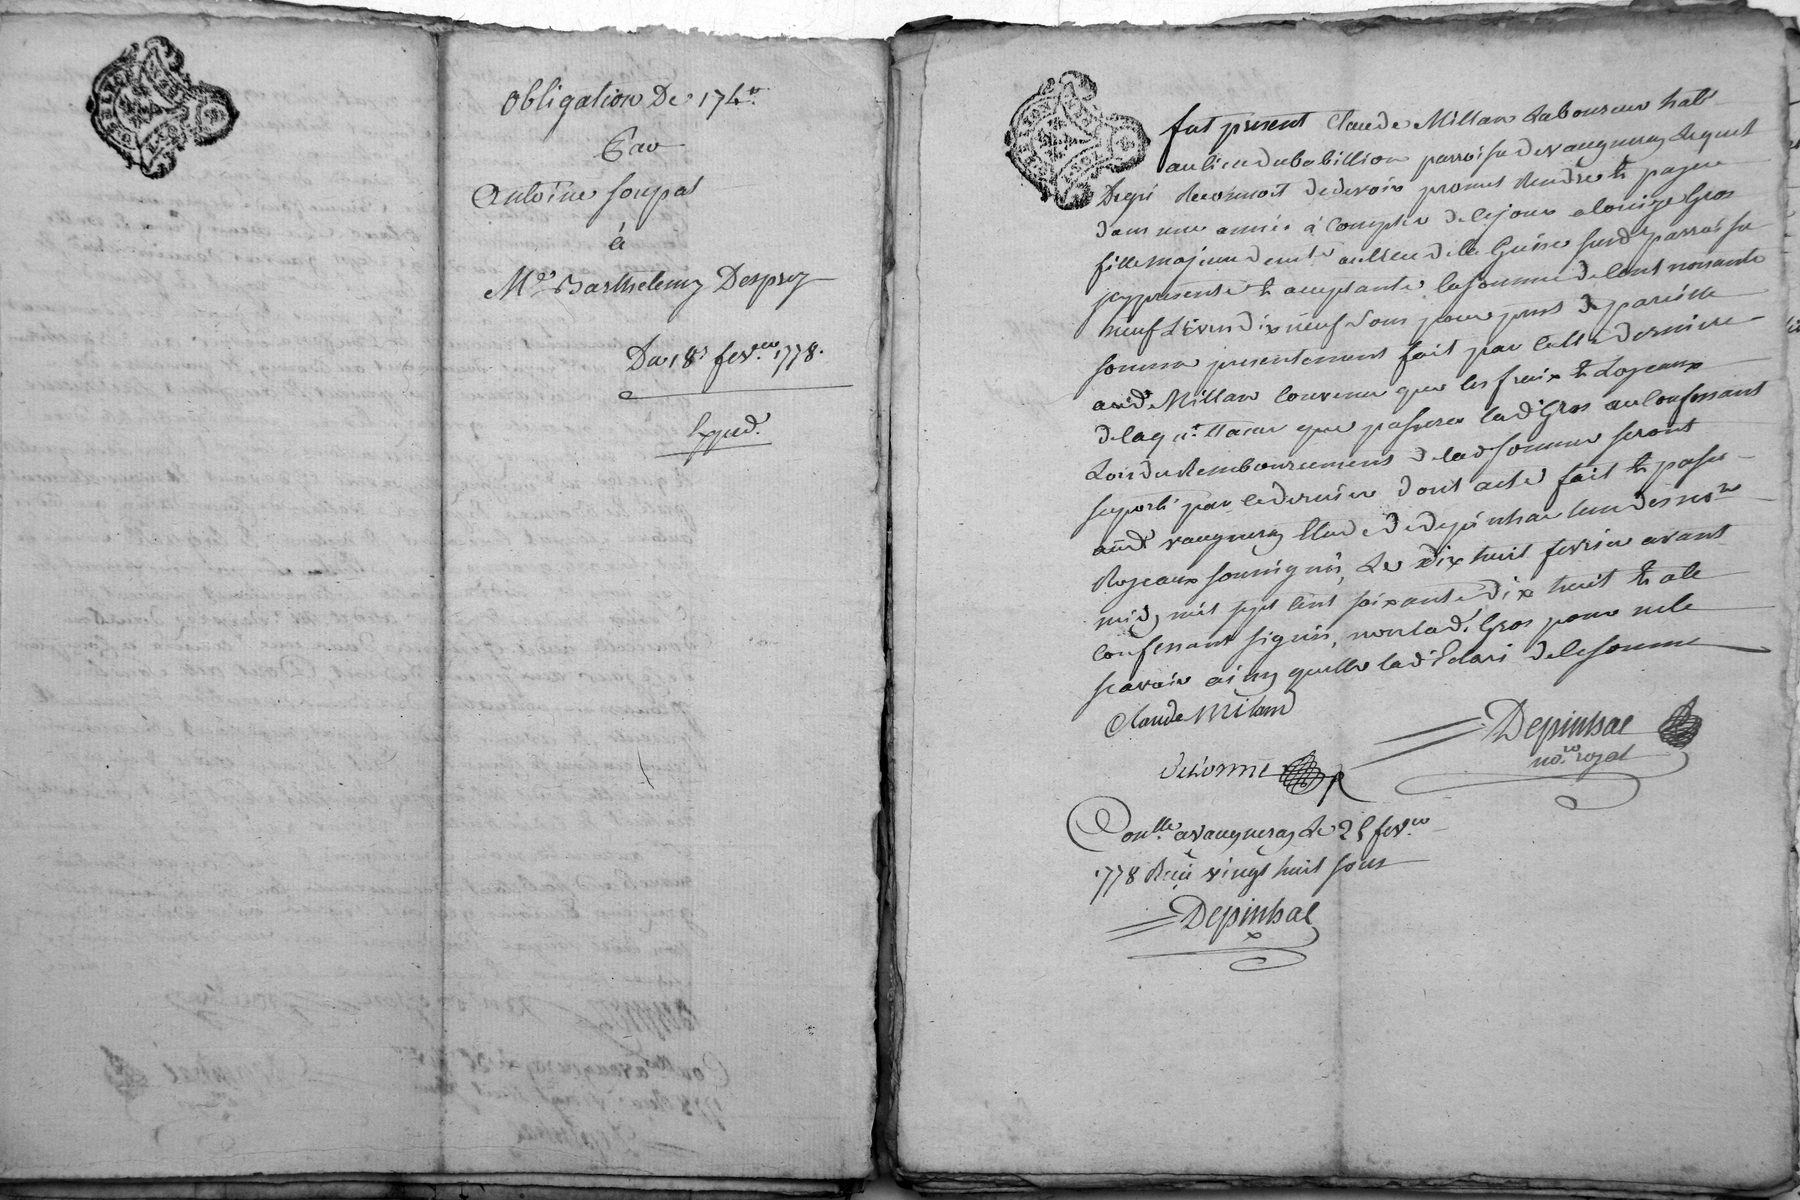 Obligation De 174ᵗᵗ
Par
Antoine soupat
à
Mᵉ Barthelemy Desprez
Du 18 fevᵉʳ 1778.
Exped.
fut present Claude Millan Laboureur habᵗ
au lieu du babillion parroisse de vaugneray Lequel
De gré Reconnoit de devoir promet Rendre et payer
dans une année à compter de ce jour a Gros
fille majeure demᵗᵉ au lieu de la susdᵉ parroisse
cy presente et acceptante la somme de Cent nonante
neuf Livres dix neuf sous pour prest de pareille
somme presentement fait par cette derniere
audᵗ Millan convenu que les fraix et Loyeaux
de la quittance que passera ladᵉ Gros au confessant
Lors du Remboursement de lad somme seront
suporté par ce dernier dont acte fait et passé
audᵗ vaugneray Etude de depinhac lun des noʳᵉˢ
Royeaux soussignés, Le dix huit fevrier avant
midy mil sept cent soixante dix huit et a le
confessant signé, non ladᵉ Gros pour ne le
scavoir ainsy quelle la déclaré de ce sommée
Claude miland
Depinhac
noʳᵉ royal
delorme
Conᵗˡˡᵉ a vaugneray Le 25 fevᵉʳ
1778 Reçu vingt huit sous
Depinhac